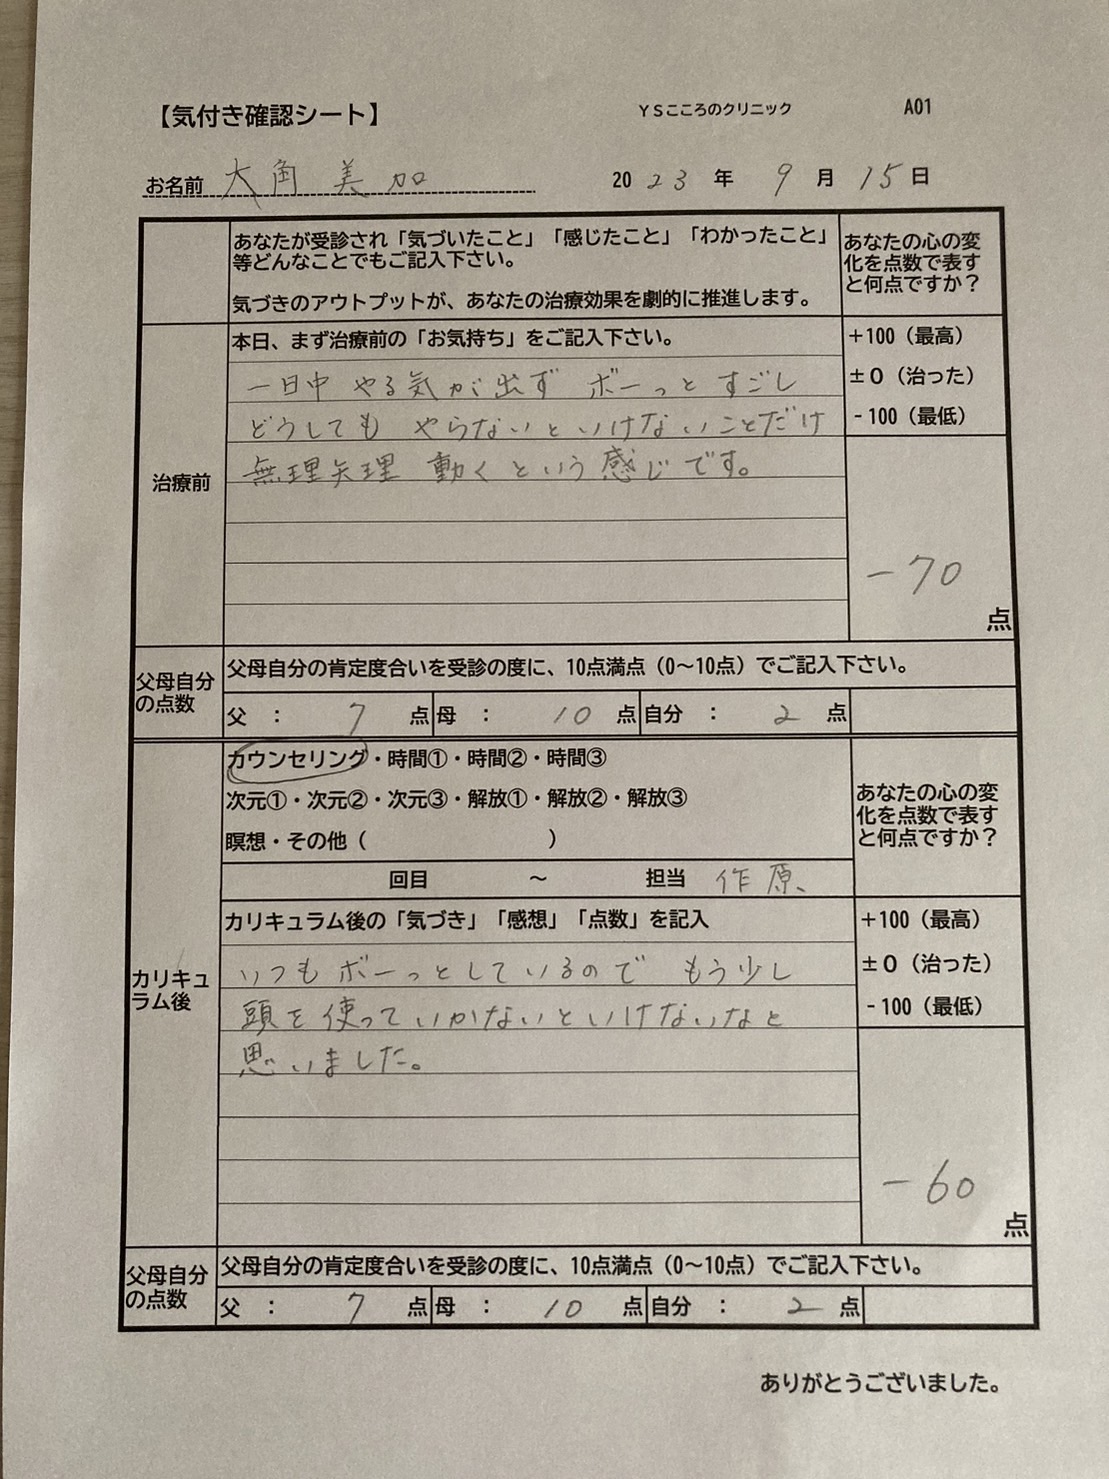 【気付き確認シート】 YSこころのクリニック A01
お名前 大角 美加 2023年 9月 15日
あなたが受診され「気づいたこと」「感じたこと」「わかったこと」
等どんなことでもご記入下さい。
気づきのアウトプットが、あなたの治療効果を劇的に推進します。
あなたの心の変
化を点数で表す
と何点ですか？
治療前
本日、まず治療前の「お気持ち」をご記入下さい。
一日中 やる気が出ず ボーっと すごし
どうしても やらないといけないことだけ
無理矢理 動くという感じです。
+100（最高）
±0（治った）
-100（最低）
-70
点
父母自分
の点数
父母自分の肯定度合いを受診の度に、10点満点（0～10点）でご記入下さい。
父 ： 7 点 母 ： 10 点 自分 ： 2 点
カリキュ
ラム後
カウンセリング・時間①・時間②・時間③
次元①・次元②・次元③・解放①・解放②・解放③
瞑想・その他（ ）
回目 ～ 担当 作原
あなたの心の変
化を点数で表す
と何点ですか？
カリキュラム後の「気づき」「感想」「点数」を記入
いつもボーっとしているので もう少し
頭を使っていかないといけないなと
思いました。
+100（最高）
±0（治った）
-100（最低）
-60
点
父母自分
の点数
父母自分の肯定度合いを受診の度に、10点満点（0～10点）でご記入下さい。
父 ： 7 点 母 ： 10 点 自分 ： 2 点
ありがとうございました。